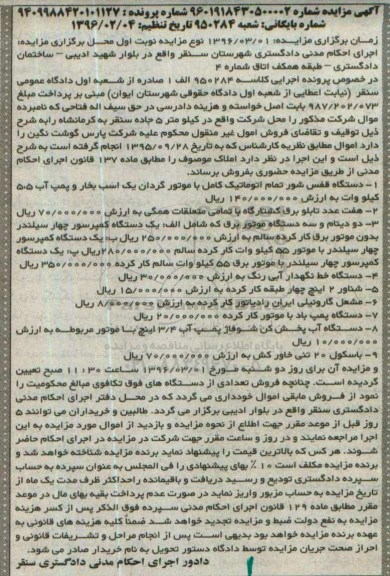 آگهی مزایده شماره ۹۶۰۱۹۱۸۴۳۰۵۰۰۰۰۲ شماره پرونده : ۹۴۰۹۹۸۸۴۲۰۱۰۱۱۲۷
شماره بایگانی: شعبه ۹۵۰۲۸۴ تاریخ تنظیم: ۱۳۹۶/۰۲/۰۴
زمان برگزاری مزایده: ۱۳۹۶/۰۳/۰۱ نوع مزایده نوبت اول محل برگزاری مزایده:
اجرای احکام مدنی دادگستری شهرستان سنقر واقع در بلوار شهید ادیبی – ساختمان
دادگستری – طبقه همکف اتاق شماره ۴
در خصوص پرونده اجرایی کلاسه ۹۵۰۲۸۴ الف ۱ صادره از شعبه اول دادگاه عمومی
سنقر (نیابت اعطایی از شعبه اول دادگاه حقوقی شهرستان ایوان) مبنی بر پرداخت مبلغ
۹۸۷/۲۰۲/۰۷۳ بابت اصل خواسته و هزینه دادرسی در حق سیف اله فتاحی که نامبرده
اموال شرکت مذکور را محل شرکت واقع در کیلو متر ۵ جاده سنقر به کرمانشاه رابه شرح
ذیل توقیف و تقاضای فروش امول غیر منقول محکوم علیه شرکت پارس گوشت نگین را
دارد اموال مطابق نظریه کارشناس که به تاریخ ۱۳۹۵/۰۹/۲۸ انجام گرفته است به شرح
ذیل است و این اجرا در نظر دارد املاک موصوف را مطابق ماده ۱۳۷ قانون اجرای احکام
مدنی از طریق مزایده حضوری بفروش برساند.
۱- دستگاه قفس شور تمام اتوماتیک کامل با موتور گردان یک اسب بخار و پمپ آب ۵.۵
کیلو وات به ارزش ۱۴۰/۰۰۰/۰۰۰ ریال
۲- هفت عدد تابلو برق کشتارگاه با تمامی متعلقات همگی به ارزش ۷۰/۰۰۰/۰۰۰ ریال
۳- دو دینام و سه دستگاه موتور برق که شامل الف: یک دستگاه کمپرسور چهار سیلندر
بدون موتور برق کار کرده سالم به ارزش ۲۵۰/۰۰۰/۰۰۰ ریال ب: یک دستگاه کمپرسور
چهار سیلندر با موتور ۵۵ کیلو وات کار کرده سالم ۲۸۰/۰۰۰/۰۰۰ ریال پ: یک دستگاه
کمپرسور چهار سیلندر با موتور برق ۵۵ کیلو وات سالم کار کرده ۳۵۰/۰۰۰/۰۰۰ ریال
۴- دستگاه خط نگهدار آبی رنگ به ارزش ۳۰/۰۰۰/۰۰۰ ریال
۵- شناور ۲ اینچ چهار طبقه کار کرده به ارزش ۱۵/۰۰۰/۰۰۰ ریال
۶- مشعل گازوئیلی ایران رادیاتور کار کرده به ارزش ۸/۰۰۰/۰۰۰ ریال
۷- دستگاه پمپ باد با موتور کار کرده ۲۰/۰۰۰/۰۰۰ ریال
۸- دستگاه آب پخش کن شوفاژ پمپ آپ ۳/۴ اینچ با موتور مربوطه به ارزش
۱۰/۰۰۰/۰۰۰ ریال
۹- باسکول ۲۰ تنی خاور کش به ارزش ۷۰/۰۰۰/۰۰۰ ریال
و مزایده آن برای روز دو شنبه مورخ ۱۳۹۶/۰۳/۰۱ ساعت ۱۱:۳۰ صبح تعیین
گردیده است. چنانچه فروش تعدادی از دستگاه های فوق تکافوی مبالغ محکومیت را
نمود از فروش مابقی اموال خودداری می گردد که در محل دفتر اجرای احکام مدنی
دادگستری سنقر واقع در بلوار ادیبی برگزار می گردد. طالبین و خریداران می توانند ۵
روز قبل از موعد مقرر جهت اطلاع از نحوه مزایده و بازدید از اموال مورد مزایده به این
اجرا مراجعه نمایند و در روز و ساعت مقرر جهت شرکت در مزایده در اجرای احکام حاضر
شوند. هر کس که بالاترین قیمت را پیشنهاد نماید برنده مزایده شناخته خواهد شد و
برنده مزایده مکلف است ۱۰ ٪ بهای پیشنهادی را فی المجلس به عنوان سپرده به حساب
سپرده دادگستری تودیع و رسید دریافت و باقیمانده راحداکثر ظرف مدت یک ماه از
تاریخ مزایده به حساب مزبور واریز نماید در صورت عدم پرداخت بقیه بهای مال در موعد
مقرر مطابق ماده ۱۲۹ قانون اجرای احکام مدنی سپرده فوق الذکر پس از کسر هزینه
مزایده به نفع دولت ضبط و مزایده تجدید خواهد شد ضمناً کلیه هزینه های قانونی به
عهده برنده مزایده خواهد بود بدیهی است پس از انجام مراحل و تشریفات قانونی و
احراز صحت جریان مزایده توسط دادگاه دستور تحویل به نام خریدار صادر می شود.
دادور اجرای احکام مدنی دادگستری سنقر